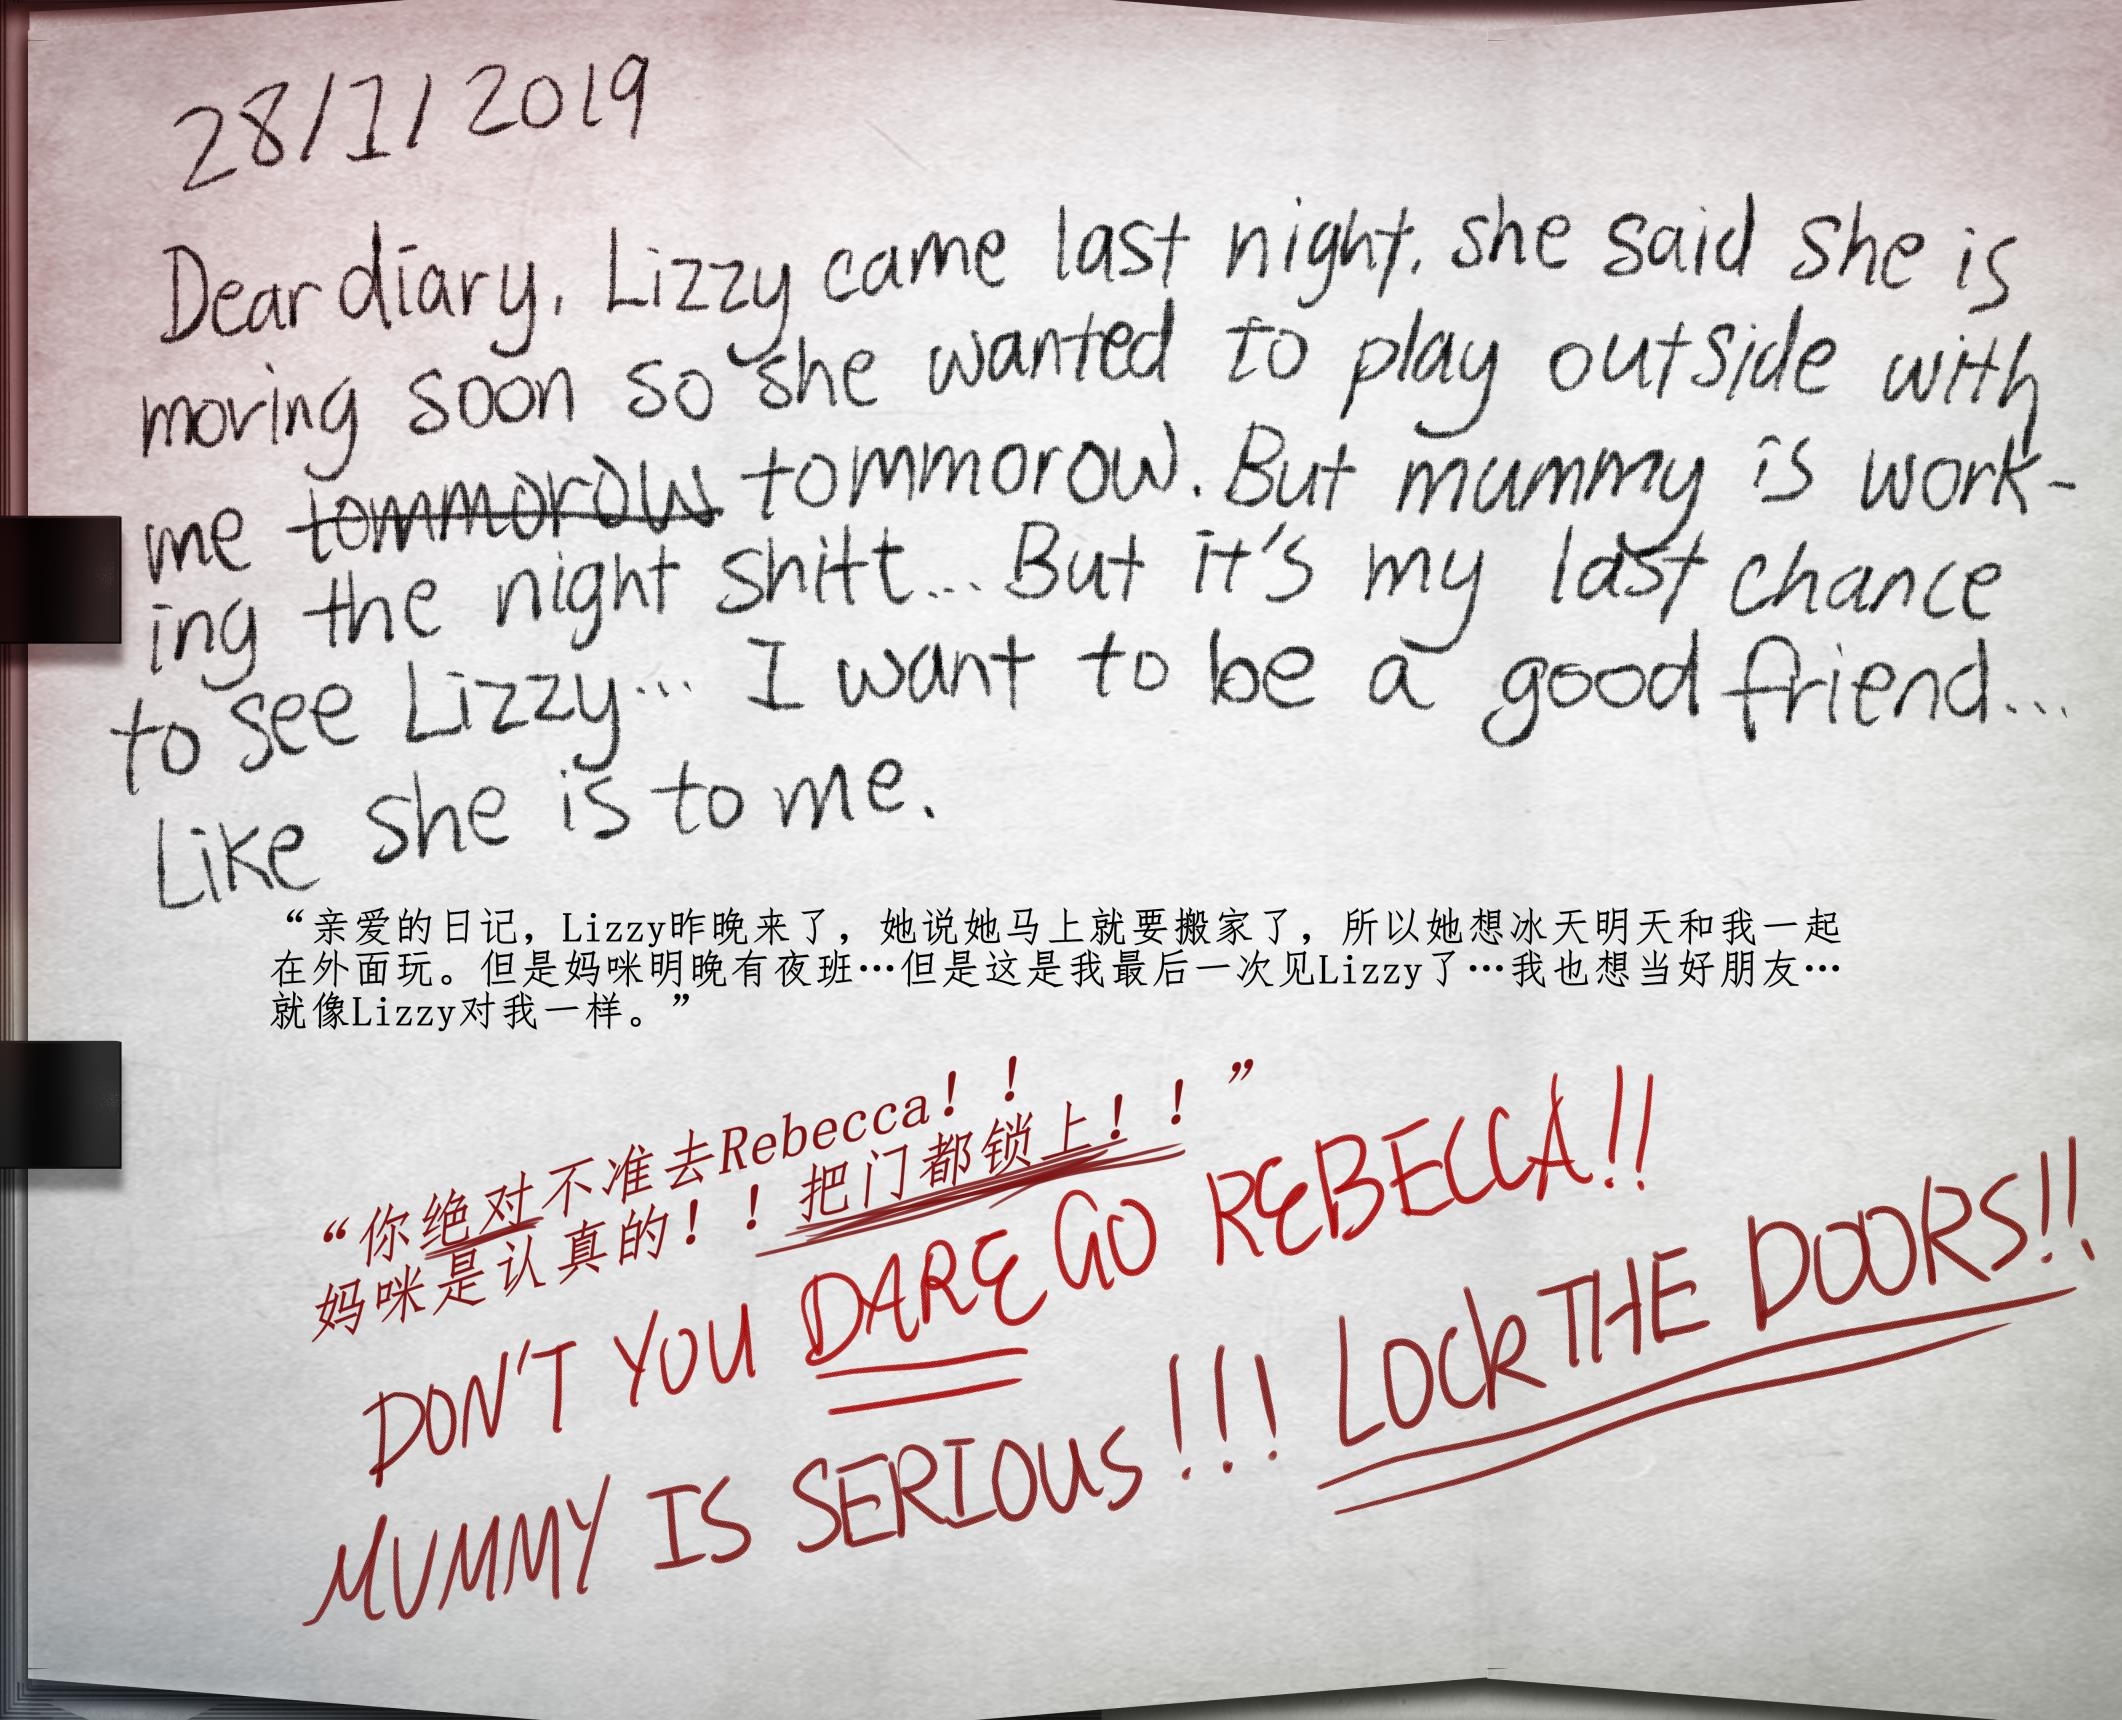 28/1/2019
Dear diary, Lizzy came last night. she said she is
moving soon so she wanted to play outside with
me tommorow tommorow. But mummy is work-
ing the night shitt... But it's my last chance
to see Lizzy... I want to be a good friend...
Like she is to me.
“亲爱的日记，Lizzy昨晚来了，她说她马上就要搬家了，所以她想冰天明天和我一起
在外面玩。但是妈咪明晚有夜班…但是这是我最后一次见Lizzy了…我也想当好朋友…
就像Lizzy对我一样。”
“你绝对不准去Rebecca！！
妈咪是认真的！！把门都锁上！！”
DON'T YOU DARE GO REBECCA!!
MUMMY IS SERIOUS!!! LOCK THE DOORS!!